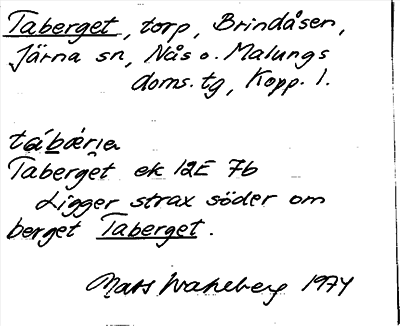 Taberget, torp, Brindåsen,
Järna sn, Nås o. Malungs
doms. tg, Kopp. l.
tábæ̀rıa
Taberget ek 12E 7b
Ligger strax söder om
berget Taberget.
Mats Wahlberg 1974